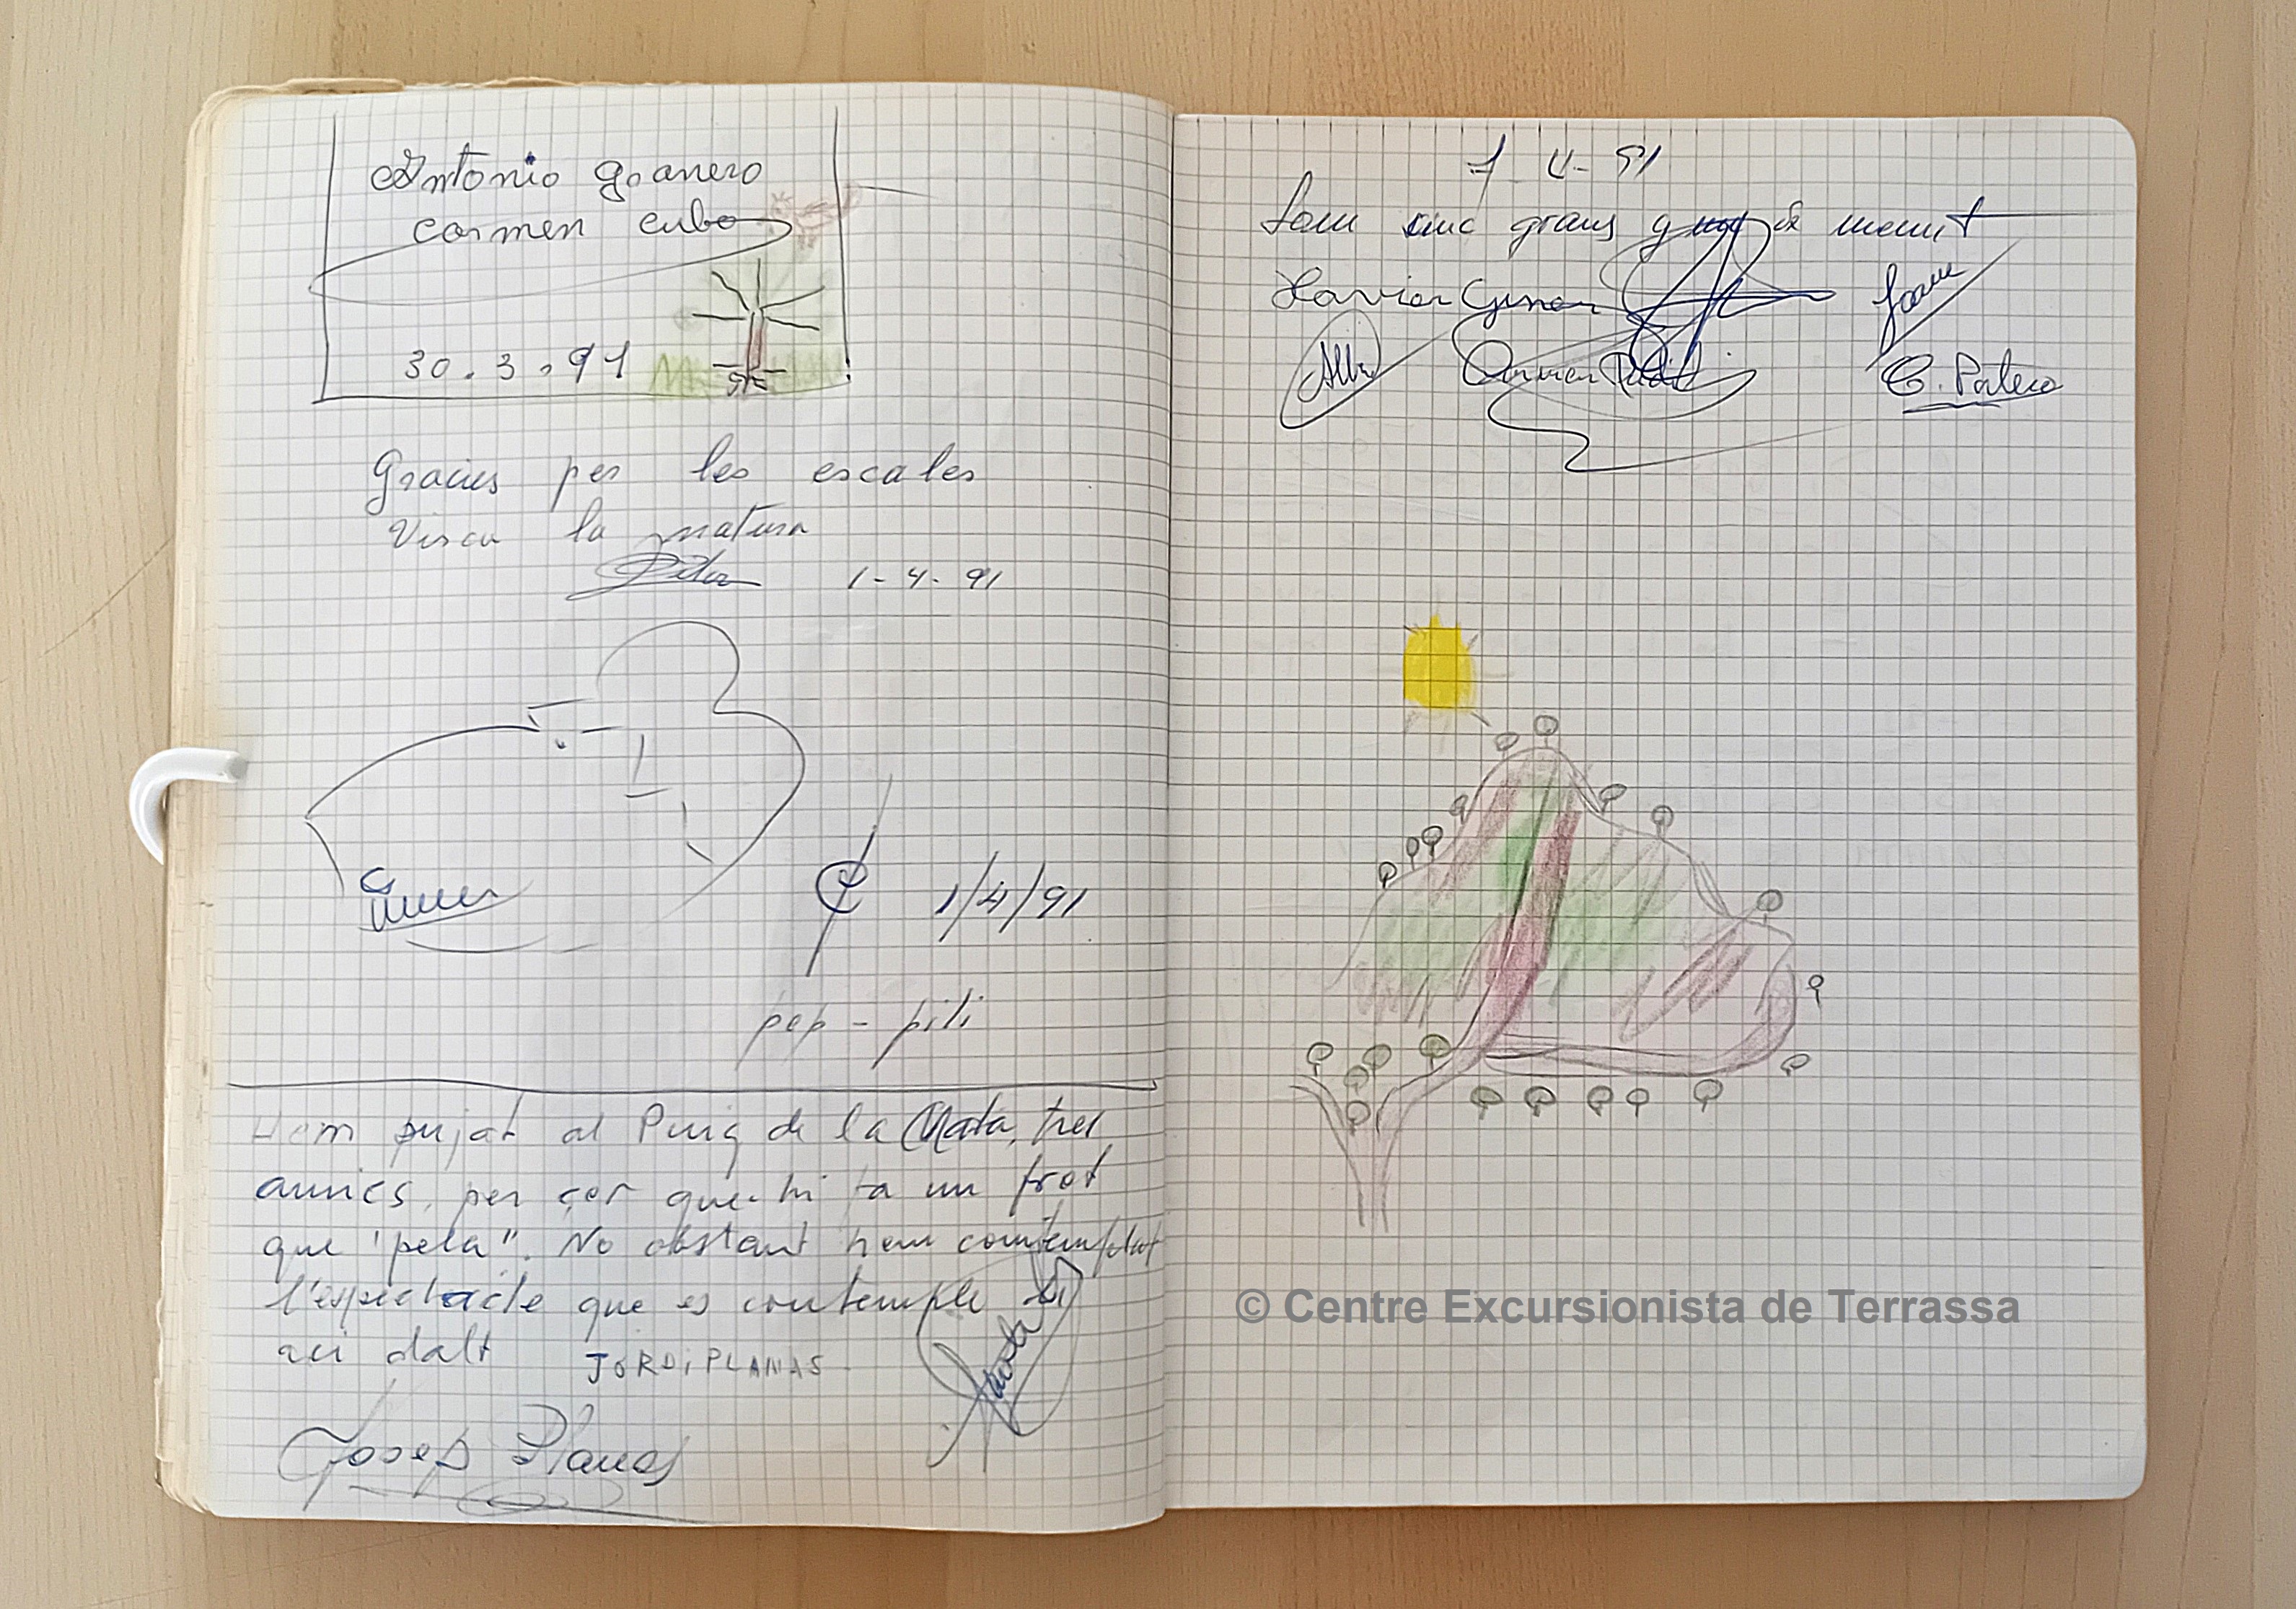 Antonio Granero
Carmen Cubo
30.3.91
Gracies per les escales
Visca la natura
1-4-91
1/4/91
pep - pili
Hem pujat al Puig de la Mata, tres
amics, per çer que hi fa un frot
que "pela". No obstant hem comtemplat
l'espectacle que es contemple
aci dalt JORDI PLANAS
Josep Planas
1-4-91
Som cinc grans y un de menut
Xavier Giner
Jaume
Albi
Carmen
C. Potero
© Centre Excursionista de Terrassa